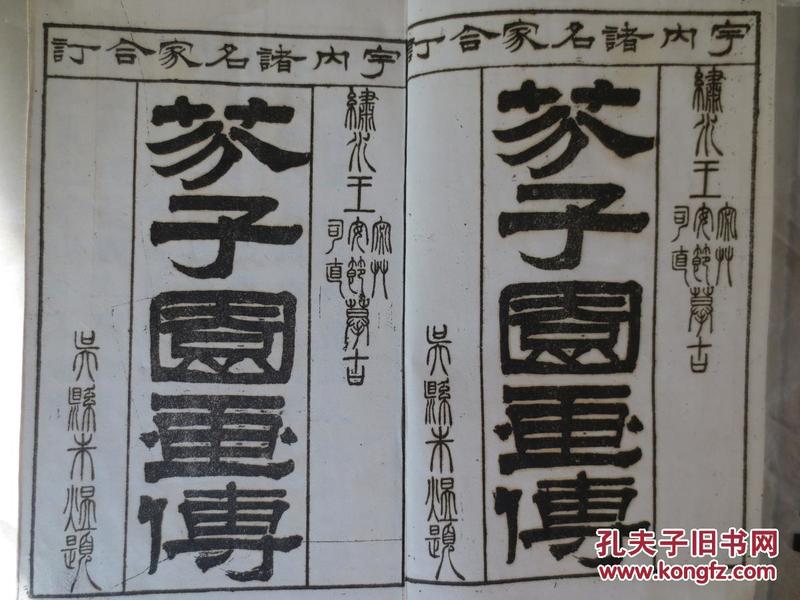 宇内諸名家合訂
繡水王
宓艸
安節
司直
摹古
芥子園畫傳
吳縣朱題
宇内諸名家合訂
繡水王
宓艸
安節
司直
摹古
芥子園畫傳
吳縣朱題
孔夫子旧书网
www.kongfz.com